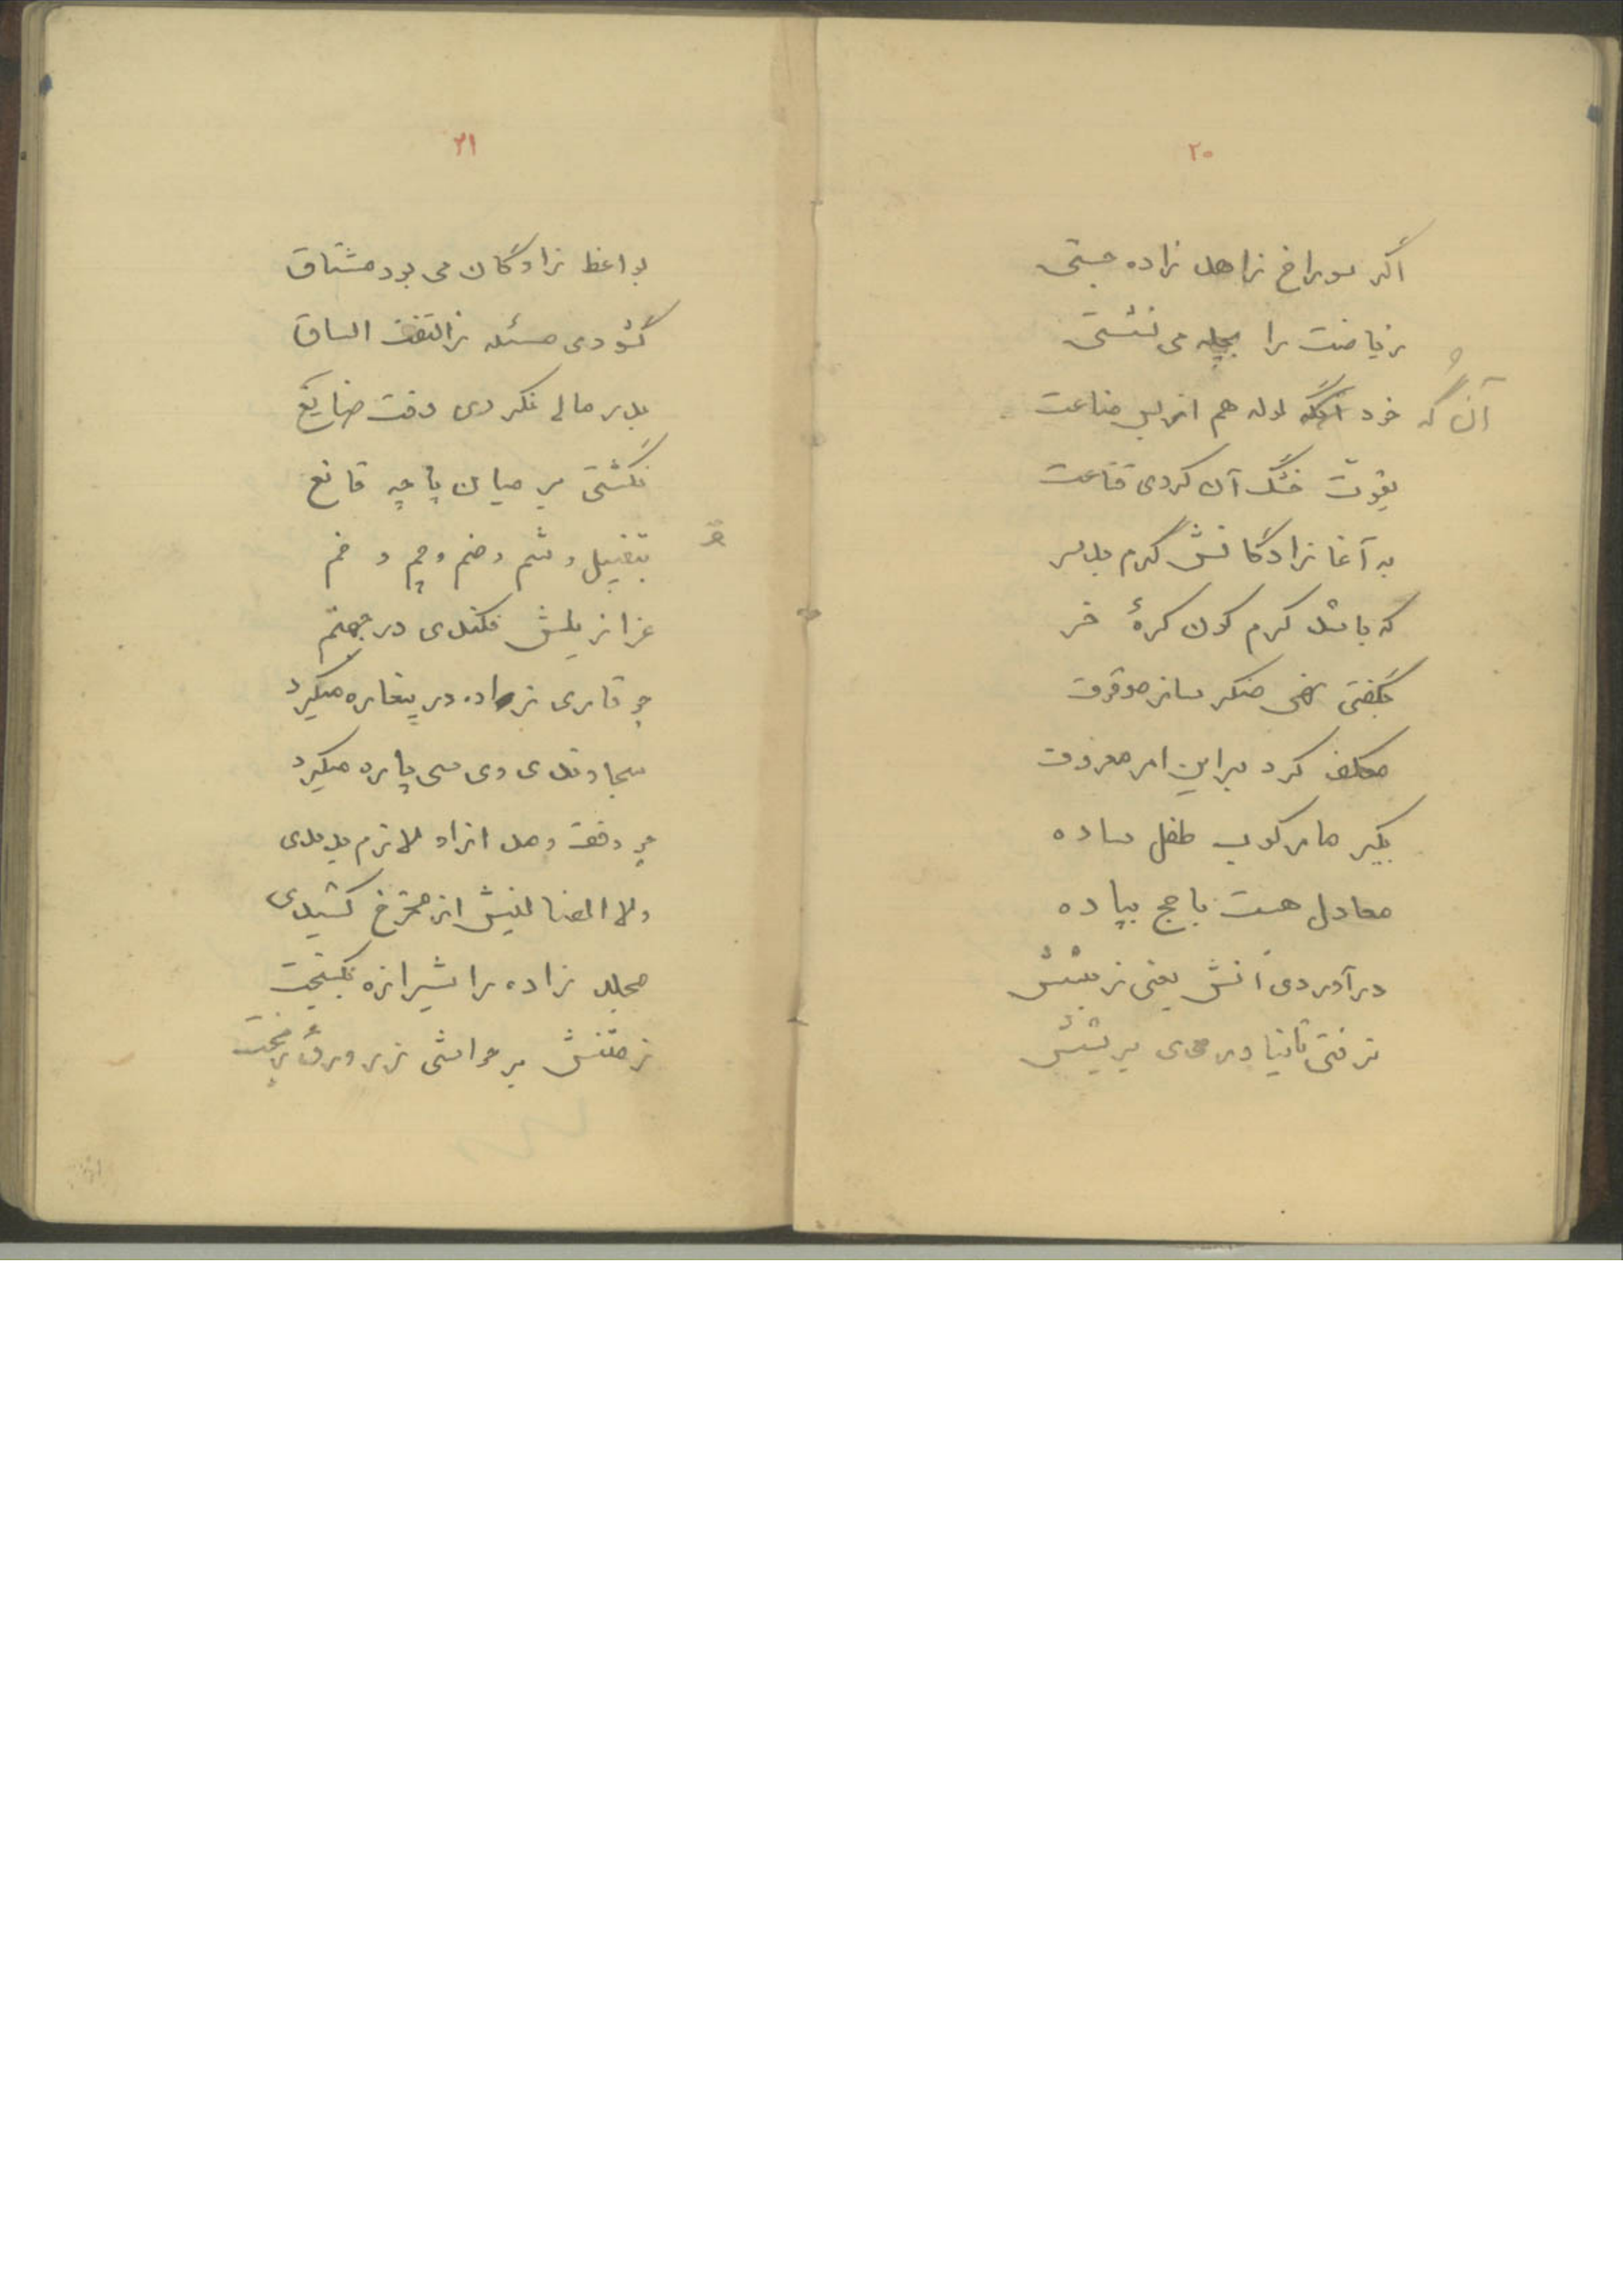 ۲۰
اگر سوراخ زاهد زاده جستی
ریاضت را بچله می نشستی
آن که خود لوله هم از بس مناعت
بقوت خشک آن کردی قناعت
به آغا زادگانش گرم بد سر
که باشد گرم کون کرهٔ خر
بگفتی نهی منکر ساز موقوف
مکلف کرد بر این امر معروف
بگیر ها مرکوب طفل ساده
معادل هست با حج پیاده
درآوردی آنش یعنی ز پیشش
نرفتی ثانیا در پیشش
۲۱
بواعظ زادگان می بود مشتاق
گشودی مسئله ز التفت الساق
بدر مالی نکردی وقت ضایع
نگشتی بر میان پاچه قانع
بتقبیل و شم و ضم و چم و خم
عزازیلش فکندی در جهنم
چو قاری زاده در بیغاره میگیرد
سجاوندی وی سی پاره میگیرد
چو وقف وصل از او لازم بدیدی
ولا الضالینش از مخرج کشیدی
مجلد زاده را شیرازه بگسیخت
ز متنش بر حواشی زر ورق ریخت